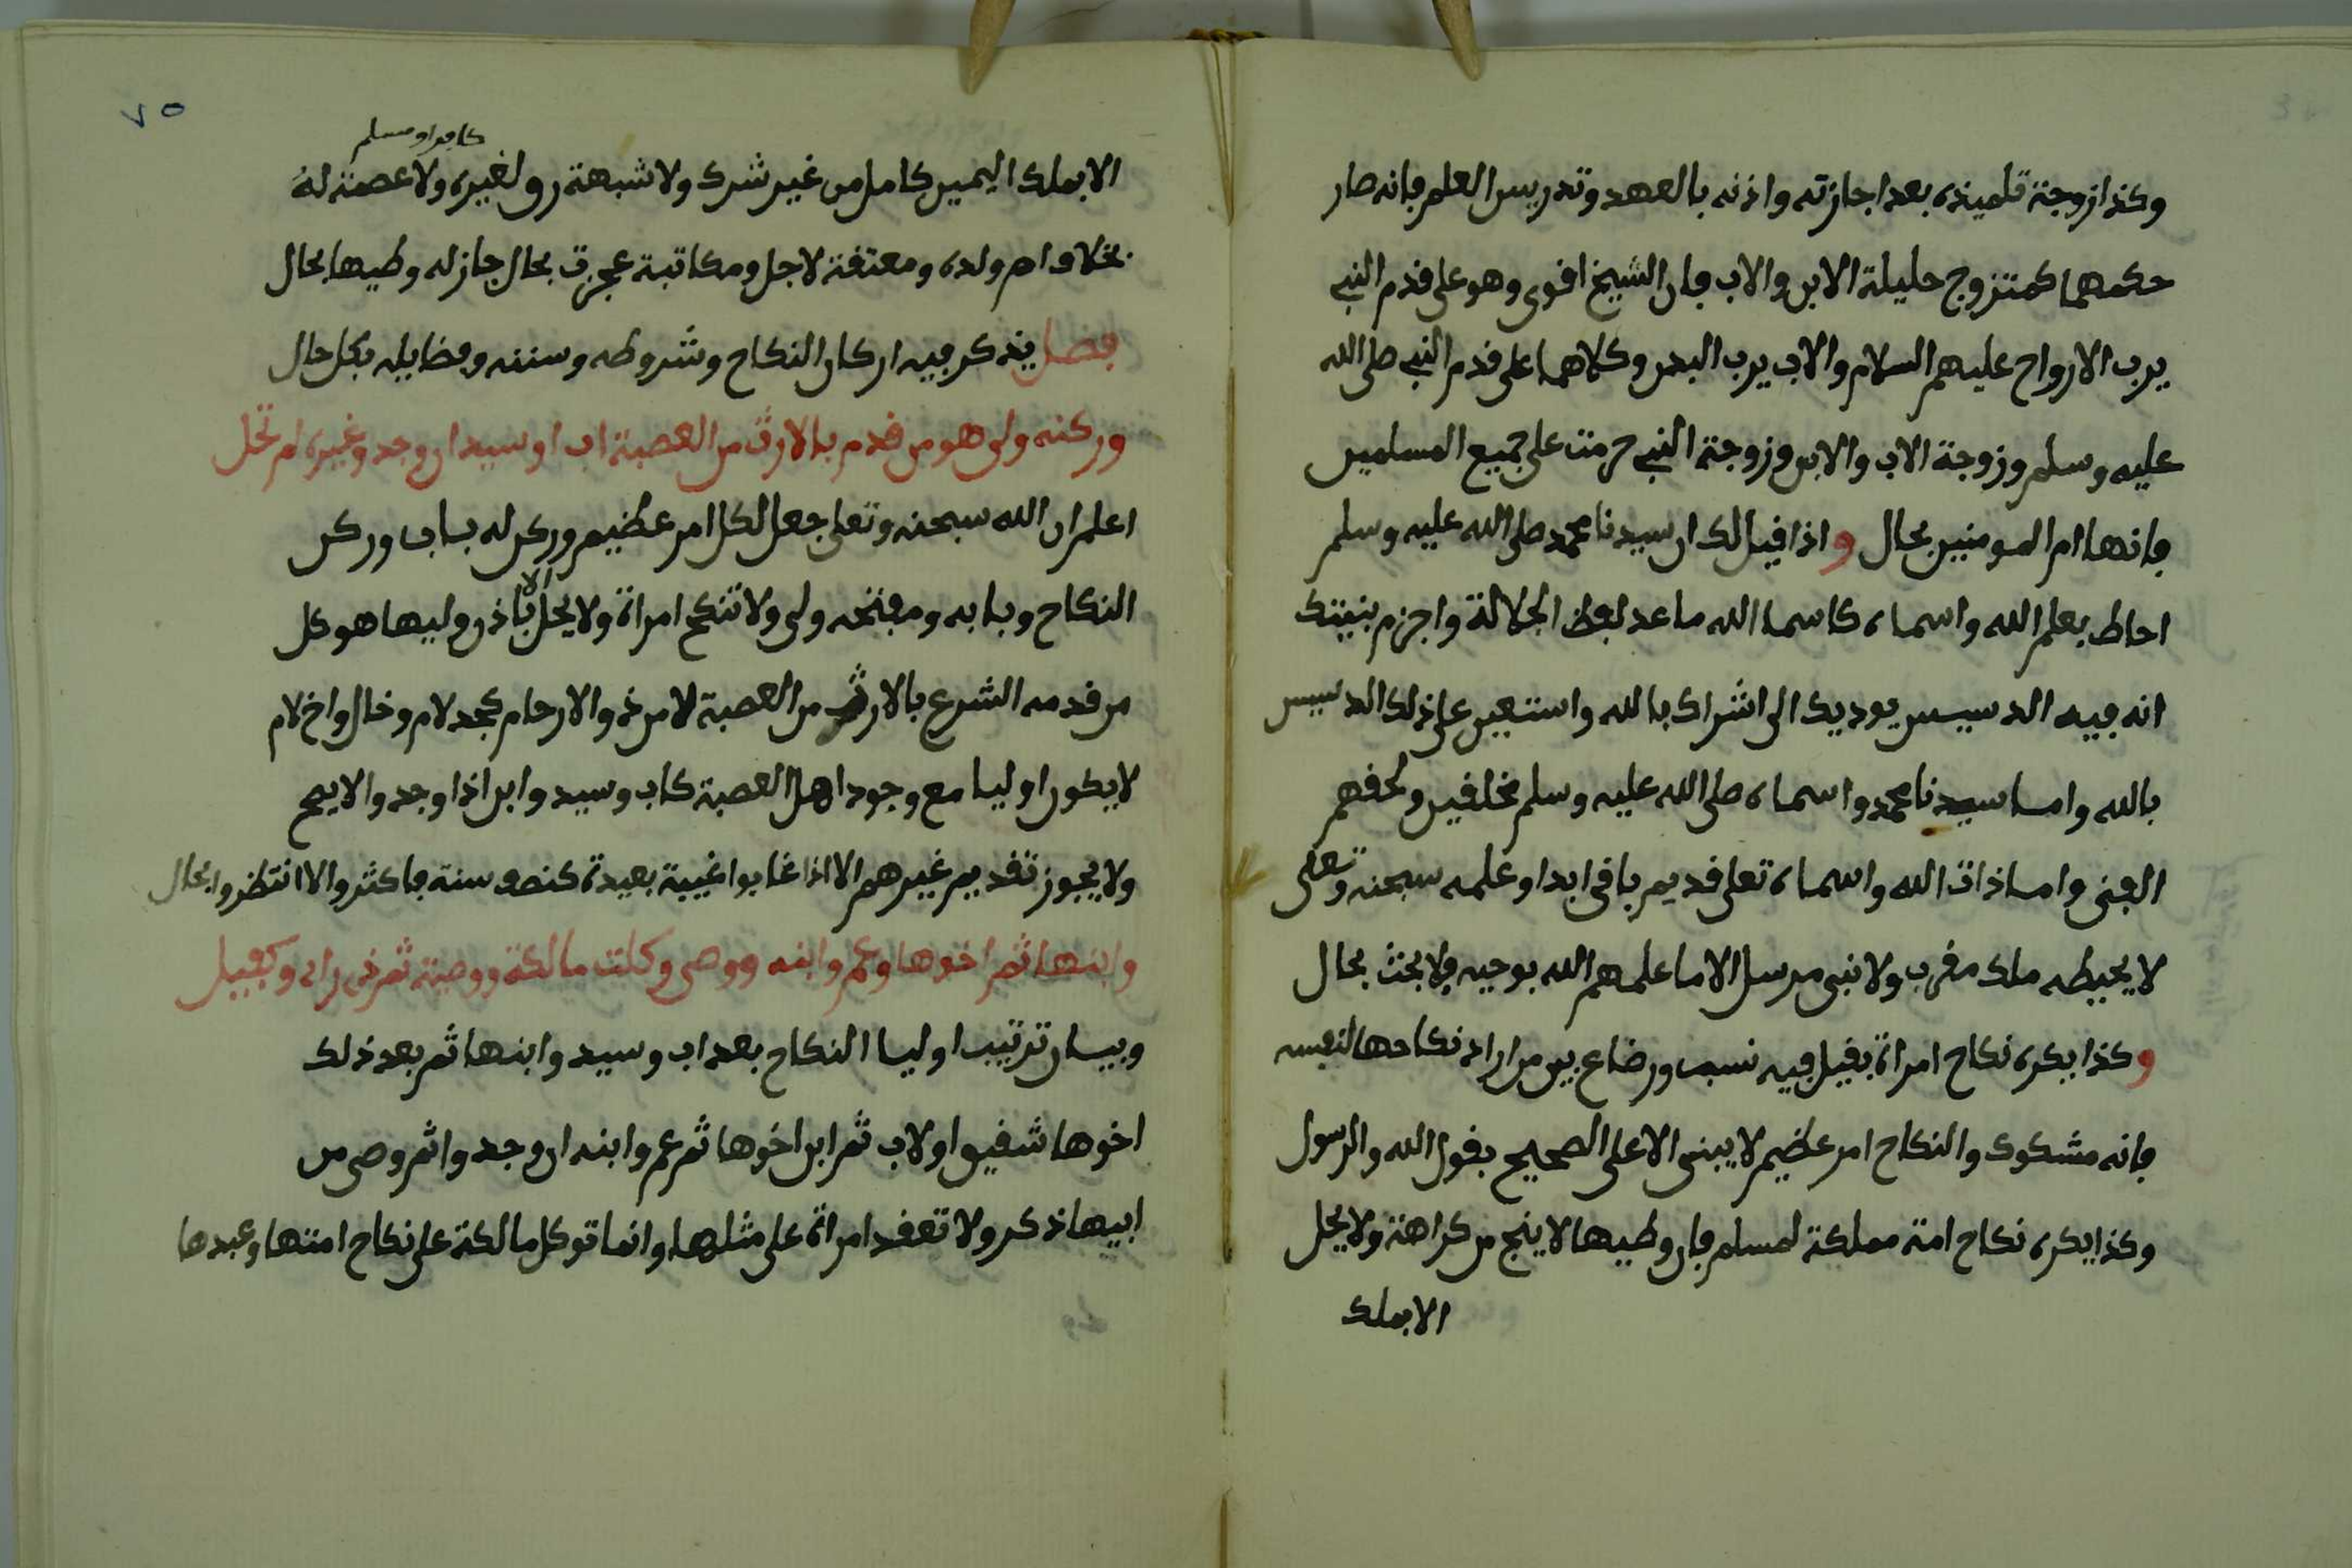 وكذا زوجة تلميذه بعد اجازته واذنه بالعهد وتدريس العلم فانه صار
حكمهما كمتزوج حليلة الابن والاب فان الشيخ اقوى وهو على قدم النبي
يرب الارواح عليهم السلام والاب يرب البدن وكلاهما على قدم النبي صلى الله
عليه وسلم وزوجة الاب والابن وزوجة النبي حرمت على جميع المسلمين
فانها ام المومنين بحال واذا قيل لك ان سيدنا محمد صلى الله عليه وسلم
احاط بعلم الله واسماه كاسما الله ما عد لفظ الجلالة واجزم بنيتك
انه فيه الدسيس يوديك الى اشراك بالله واستعين على ذلك الدسيس
بالله واما سيدنا محمد واسماه صلى الله عليه وسلم مخلقين ولحقهم
الفنى واما ذات الله واسماه تعلى قديم باقى ابدا وعلمه سبحنه وتعلى
لا يحيطه ملك مقرب ولا نبى مرسل الا ما علمهم الله بوحيه فلا بحث بحال
وكذا يكره نكاح امراة بقيل فيه نسب ورضاع بين من اراد نكاحها لنفسه
فانه مشكوك والنكاح امر عظيم لا يبنى الا على الصحيح بقول الله والرسول
وكذا يكره نكاح امة مملكة لمسلم فان وطيها لا ينج من كراهة ولا يحل
الا بملك
٧٥
كافر او مسلم
الا بملك اليمين كامل من غير شرك ولا شبهة رق لغيره ولا عصمة له
بخلاف ام ولده ومعتقة لاجل ومكاتبة عجزت بحال جاز له وطيها بحال
فصل يذكر فيه اركان النكاح وشروطه وسننه وفضايله بكل حال
وركنه ولى هو من قدم بالارث من العصبة اب او سيد ان وجد وغيره لم تحل
اعلم ان الله سبحنه وتعلى جعل لكل امر عظيم وركن له باب وركن
النكاح وبابه ومفتحه ولى ولا تنكح امراة ولا يحل الا باذن وليها هو كل
من قدمه الشرع بالارث من العصبة لا من ذو الارحام كجد لام وخال واخ لام
لا يكون اوليا مع وجود اهل العصبة كاب وسيد وابن اذا وجد والا يصح
ولا يجوز تقديم غيرهم الا اذا غابوا غيبة بعيدة كنصف سنة فاكثر والا انتظروا بحال
وابنها ثم اخوها وعم وابنه ووصى وكلت مالكة ووصية ثم ذى راى وكفيل
وبيان ترتيب اوليا النكاح بعد اب وسيد وابنها ثم بعد ذلك
اخوها شقيق او لاب ثم ابن اخوها ثم عم وابنه ان وجد وا ثم وصى من
ابيها ذكر ولا تعقد امراة على مثلها وانما توكل مالكة على نكاح امتها وعبدها